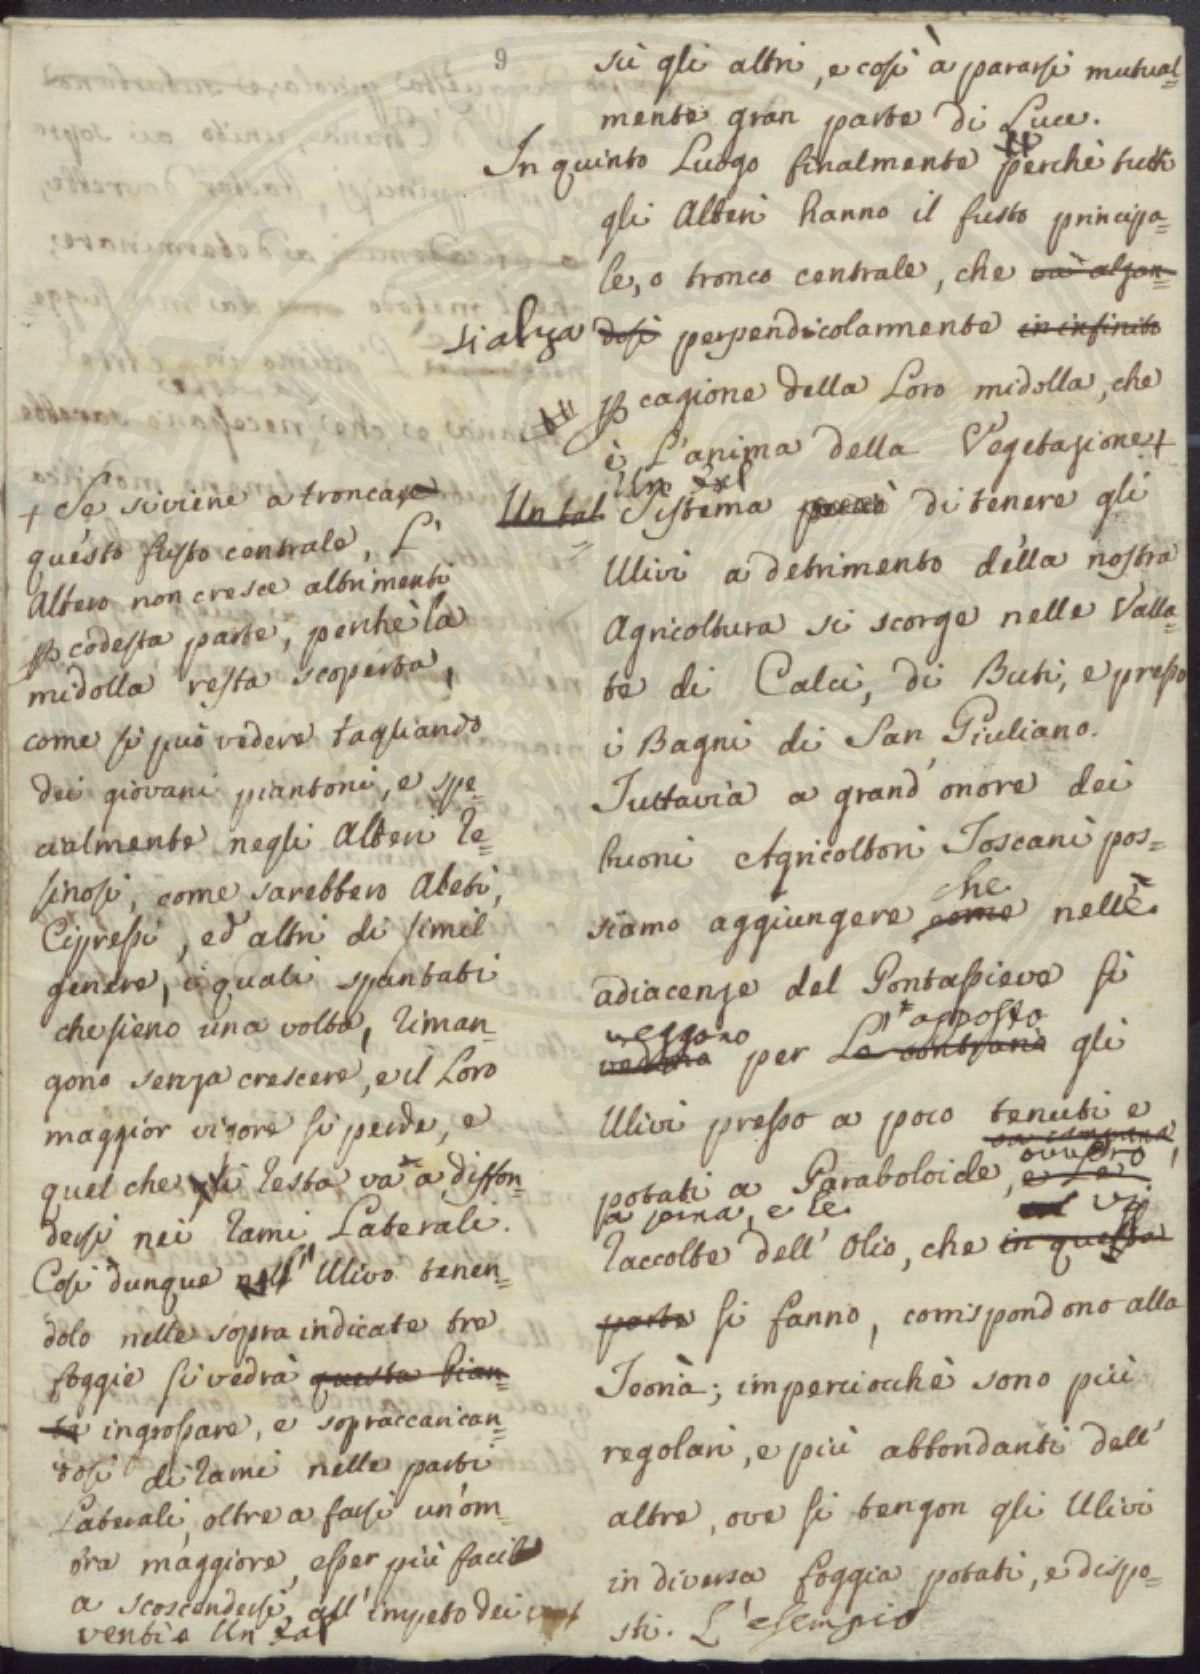 9
sù gli altri, e così à pararsi mutual=
mente gran parte di Luce.
In quinto Luogo finalmente perchè tutti
gli Alberi hanno il fusto principa=
le, o tronco centrale, che và alzan=
si alza dosi perpendicolarmente in infinito
cagione della Loro midolla, che
è L'anima della Vegetazione +
Un tal
Un tal Sistema perciò di tenere gli
Ulivi a detrimento della nostra
Agricoltura si scorge nelle Valla=
te di Calci, di Buti, e presso
i Bagni di San Giuliano.
Tuttavia a grand'onore dei
buoni Agricoltori Toscani pos=
che
siamo aggiungere come nelle
adiacenze del Pontassieve si
veggono apposto
per Lo contrario gli
Ulivi presso a poco tenuti e
potati a Paraboloide, ovvero
a pina, e le
raccolte dell'Olio, che in questa
vi
parte si fanno, corrispondono alla
Teoria; imperciocchè sono più
regolari, e più abbondanti dell'
altre, ove si tengon gli Ulivi
in diversa foggia potati, e dispo=
sti. L'esempio
+ Se si viene a troncare
questo fusto centrale, L'
Albero non cresce altrimenti
codesta parte, perchè la
midolla resta scoperta,
come si può vedere tagliando
dei giovani piantoni, e spe=
cialmente negli Alberi re=
sinosi, come sarebbero Abeti,
Cipressi, ed altri di simil
genere, i quali spuntati
che sieno una volta, riman=
gono senza crescere, e il Loro
maggior vigore si perde, e
quel che resta va a diffon=
dersi nei rami Laterali.
Così dunque nell' Ulivo tenen=
dolo nelle sopra indicate tre
foggie si vedrà questa Pian=
ta ingrossare, e sopraccarican=
dosi di rami nelle parti
Laterali, oltre a farsi un'om=
bra maggiore, esser più facile
a scoscendersi all'impeto dei
venti. Un tal